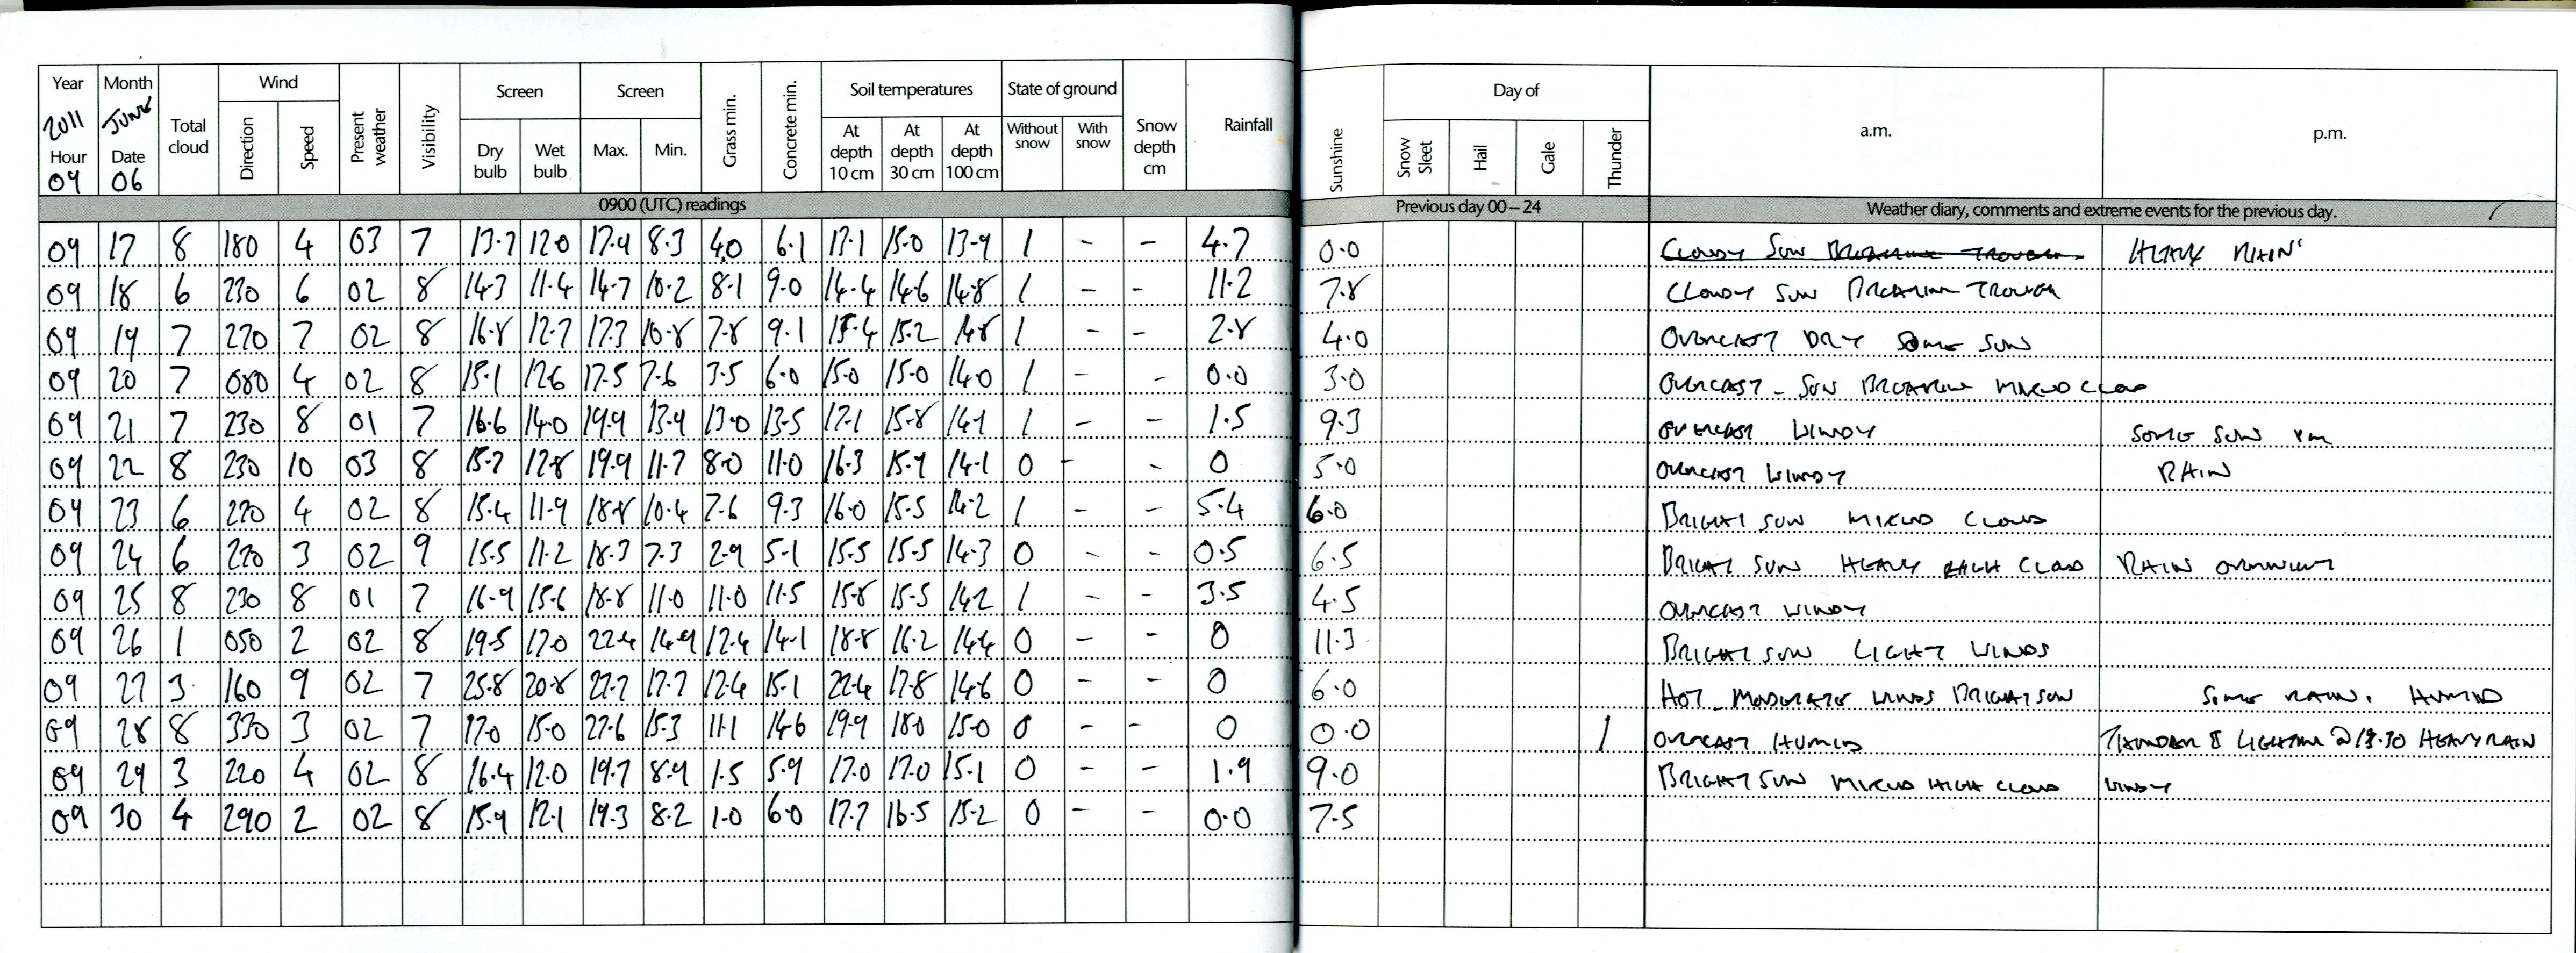 Year Month Total cloud Wind Present weather Visibility Screen Screen Grass min. Concrete min. Soil temperatures State of ground Snow depth cm Rainfall Sunshine Day of a.m. p.m.
2011 JUNE Direction Speed Dry bulb Wet bulb Max. Min. At depth 10 cm At depth 30 cm At depth 100 cm Without snow With snow Snow Sleet Hail Gale Thunder
Hour Date
09 06
0900 (UTC) readings Previous day 00 – 24 Weather diary, comments and extreme events for the previous day.
09 17 8 180 4 03 7 13.7 12.0 17.9 8.3 4.0 6.1 13.1 15.0 13.9 1 - - 4.7 0.0 HEAVY RAIN
09 18 6 230 6 02 8 14.3 11.4 14.7 10.2 8.1 9.0 14.4 14.6 14.8 1 - - 11.2 7.8 CLOUDY SUN BREAKING TROUGH
09 19 7 270 7 02 8 16.8 12.7 17.3 10.8 7.8 9.1 15.4 15.2 14.8 1 - - 2.8 4.0 OVERCAST DRY SOME SUN
09 20 7 080 4 02 8 15.1 12.6 17.5 7.6 3.5 6.0 15.0 15.0 14.0 1 - - 0.0 3.0 OVERCAST - SUN BREAKING MIXED CLOUD
09 21 7 230 8 01 7 16.6 14.0 19.9 13.9 13.0 13.5 17.1 15.8 14.1 1 - - 1.5 9.3 OVERCAST WINDY SOME SUN PM
09 22 8 230 10 03 8 15.7 12.8 19.9 11.7 8.0 11.0 16.3 15.9 14.1 0 - - 0 5.0 OVERCAST WINDY RAIN
09 23 6 270 4 02 8 15.4 11.9 18.8 10.4 7.6 9.3 16.0 15.5 14.2 1 - - 5.4 6.0 BRIGHT SUN MIXED CLOUD
09 24 6 270 3 02 9 15.5 11.2 18.3 7.3 2.9 5.1 15.5 15.5 14.3 0 - - 0.5 6.5 BRIGHT SUN HEAVY HIGH CLOUD RAIN OVERNIGHT
09 25 8 230 8 01 7 16.9 15.6 18.8 11.0 11.0 11.5 15.8 15.5 14.2 1 - - 3.5 4.5 OVERCAST WINDY
09 26 1 050 2 02 8 19.5 17.0 22.4 14.9 12.4 14.1 18.8 16.2 14.4 0 - - 0 11.3 BRIGHT SUN LIGHT WINDS
09 27 3 160 9 02 7 25.8 20.8 27.7 17.7 12.4 15.1 22.4 17.8 14.6 0 - - 0 6.0 HOT MODERATE WINDS BRIGHT SUN SOME RAIN. HUMID
09 28 8 330 3 02 7 17.0 15.0 27.6 15.3 11.1 14.6 19.9 18.0 15.0 0 - - 0 0.0 1 OVERCAST HUMID THUNDER & LIGHTNING @ 18.30 HEAVY RAIN
09 29 3 220 4 02 8 16.4 12.0 19.7 8.9 1.5 5.9 17.0 17.0 15.1 0 - - 1.9 9.0 BRIGHT SUN MIXED HIGH CLOUD WINDY
09 30 4 290 2 02 8 15.9 12.1 19.3 8.2 1.0 6.0 17.7 16.5 15.2 0 - - 0.0 7.5